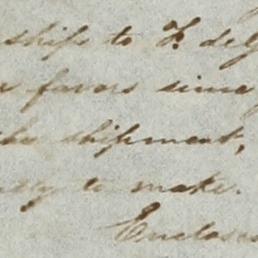 ship to F. deG
favors since
the shipment,
to make.
Enclose